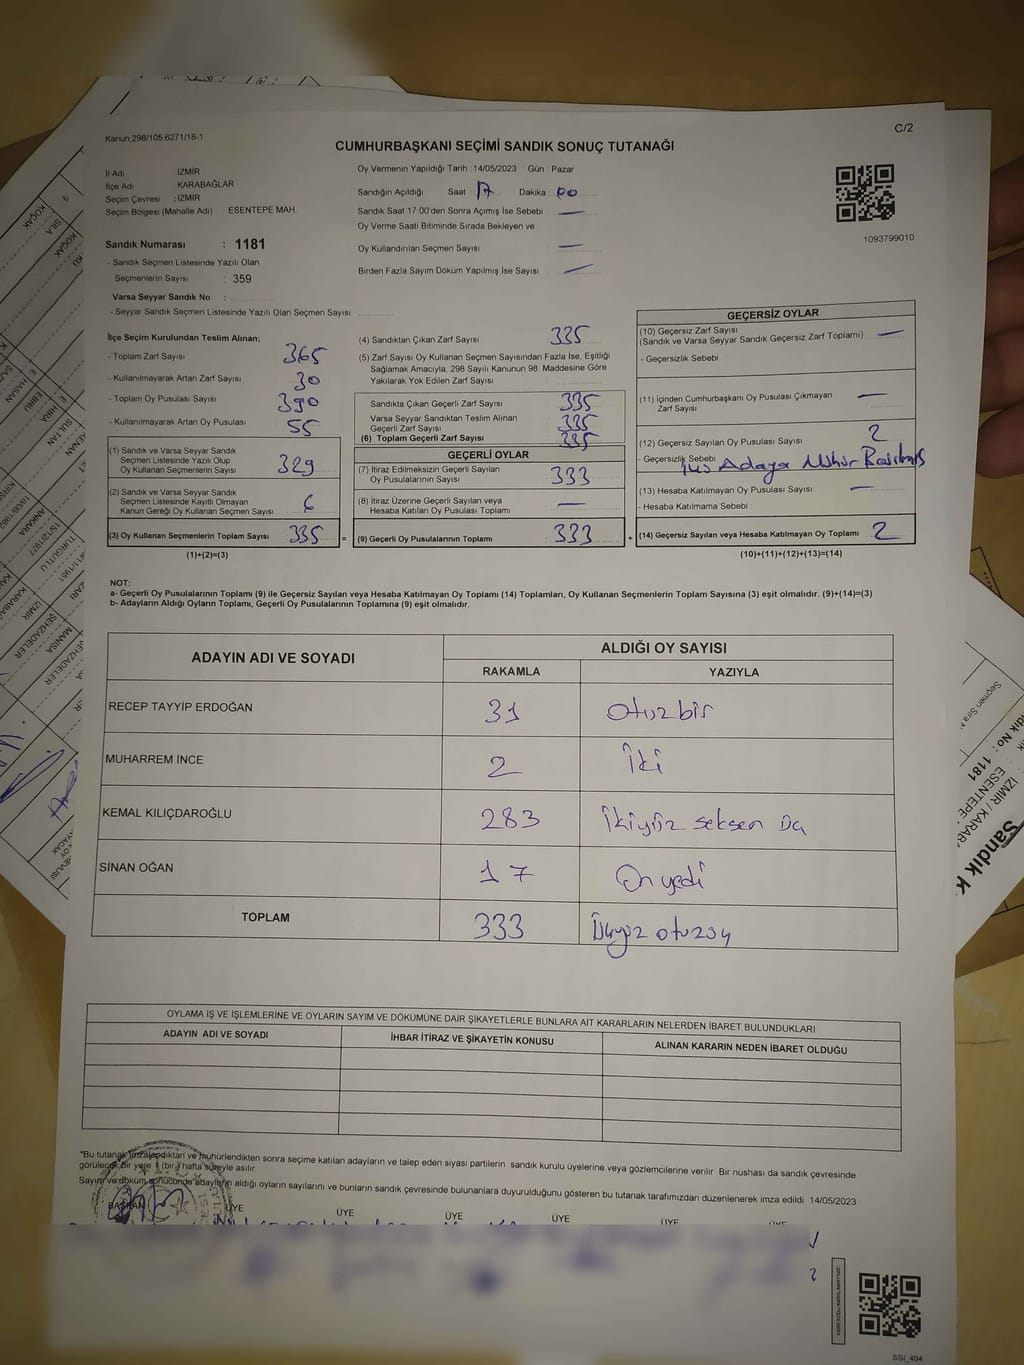 Kanun:298/105,6271/18-1
C/2
CUMHURBAŞKANI SEÇİMİ SANDIK SONUÇ TUTANAĞI
İl Adı İZMİR
İlçe Adı KARABAĞLAR
Seçim Çevresi : İZMİR
Seçim Bölgesi (Mahalle Adı) ESENTEPE MAH.
Oy Vermenin Yapıldığı Tarih : 14/05/2023 Gün : Pazar
Sandığın Açıldığı Saat 17 Dakika 00
Sandık Saat 17:00'den Sonra Açılmış İse Sebebi : —
Oy Verme Saati Bitiminde Sırada Bekleyen ve
Oy Kullandırılan Seçmen Sayısı —
Birden Fazla Sayım Döküm Yapılmış İse Sayısı —
1093799010
Sandık Numarası : 1181
- Sandık Seçmen Listesinde Yazılı Olan
Seçmenlerin Sayısı : 359
Varsa Seyyar Sandık No :
- Seyyar Sandık Seçmen Listesinde Yazılı Olan Seçmen Sayısı :
İlçe Seçim Kurulundan Teslim Alınan;
- Toplam Zarf Sayısı 365
- Kullanılmayarak Artan Zarf Sayısı 30
- Toplam Oy Pusulası Sayısı 390
- Kullanılmayarak Artan Oy Pusulası 55
(1) Sandık ve Varsa Seyyar Sandık
Seçmen Listesinde Yazılı Olup
Oy Kullanan Seçmenlerin Sayısı 329
(2) Sandık ve Varsa Seyyar Sandık
Seçmen Listesinde Kayıtlı Olmayan
Kanun Gereği Oy Kullanan Seçmen Sayısı 6
(3) Oy Kullanan Seçmenlerin Toplam Sayısı 335 =
(1)+(2)=(3)
(4) Sandıktan Çıkan Zarf Sayısı 335
(5) Zarf Sayısı Oy Kullanan Seçmen Sayısından Fazla İse, Eşitliği
Sağlamak Amacıyla; 298 Sayılı Kanunun 98. Maddesine Göre
Yakılarak Yok Edilen Zarf Sayısı
Sandıkta Çıkan Geçerli Zarf Sayısı 335
Varsa Seyyar Sandıktan Teslim Alınan
Geçerli Zarf Sayısı 335
(6) Toplam Geçerli Zarf Sayısı 335
GEÇERLİ OYLAR
(7) İtiraz Edilmeksizin Geçerli Sayılan
Oy Pusulalarının Sayısı 333
(8) İtiraz Üzerine Geçerli Sayılan veya
Hesaba Katılan Oy Pusulası Toplamı —
(9) Geçerli Oy Pusulalarının Toplamı 333 +
GEÇERSİZ OYLAR
(10) Geçersiz Zarf Sayısı
(Sandık ve Varsa Seyyar Sandık Geçersiz Zarf Toplamı) —
- Geçersizlik Sebebi
(11) İçinden Cumhurbaşkanı Oy Pusulası Çıkmayan
Zarf Sayısı —
(12) Geçersiz Sayılan Oy Pusulası Sayısı 2
- Geçersizlik Sebebi Adaya Mühür
(13) Hesaba Katılmayan Oy Pusulası Sayısı —
- Hesaba Katılmama Sebebi
(14) Geçersiz Sayılan veya Hesaba Katılmayan Oy Toplamı 2
(10)+(11)+(12)+(13)=(14)
NOT:
a- Geçerli Oy Pusulalarının Toplamı (9) ile Geçersiz Sayılan veya Hesaba Katılmayan Oy Toplamı (14) Toplamları, Oy Kullanan Seçmenlerin Toplam Sayısına (3) eşit olmalıdır. (9)+(14)=(3)
b- Adayların Aldığı Oyların Toplamı, Geçerli Oy Pusulalarının Toplamına (9) eşit olmalıdır.
ADAYIN ADI VE SOYADI
ALDIĞI OY SAYISI
RAKAMLA YAZIYLA
RECEP TAYYİP ERDOĞAN 31 otuzbir
MUHARREM İNCE 2 İki
KEMAL KILIÇDAROĞLU 283 İkiyüz seksen üç
SİNAN OĞAN 17 On yedi
TOPLAM 333 Üçyüz otuzüç
OYLAMA İŞ VE İŞLEMLERİNE VE OYLARIN SAYIM VE DÖKÜMÜNE DAİR ŞİKAYETLERLE BUNLARA AİT KARARLARIN NELERDEN İBARET BULUNDUKLARI
ADAYIN ADI VE SOYADI İHBAR İTİRAZ VE ŞİKAYETİN KONUSU ALINAN KARARIN NEDEN İBARET OLDUĞU
"Bu tutanak imzalandıktan ve mühürlendikten sonra seçime katılan adayların ve talep eden siyasi partilerin sandık kurulu üyelerine veya gözlemcilerine verilir. Bir nüshası da sandık çevresinde
görülecek bir yere 1 (bir) hafta süreyle asılır.
Sayım ve döküm sonucunda adayların aldığı oyların sayılarını ve bunların sandık çevresinde bulunanlara duyurulduğunu gösteren bu tutanak tarafımızdan düzenlenerek imza edildi. 14/05/2023
BAŞKAN ÜYE ÜYE ÜYE ÜYE ÜYE ÜYE
SSI_404
Sandık K
İZMİR / KARABA
ESENTEPE
No : 1181
Seçmen Sıra N
KOÇAK
SILA
KOÇAK
HASAN
EBRU
HIRA
SULTAN
ANKARA
15/12/1977
TURGUTLU
İZMİR
ŞEHZADELER
MANİSA
ŞEHZADELER